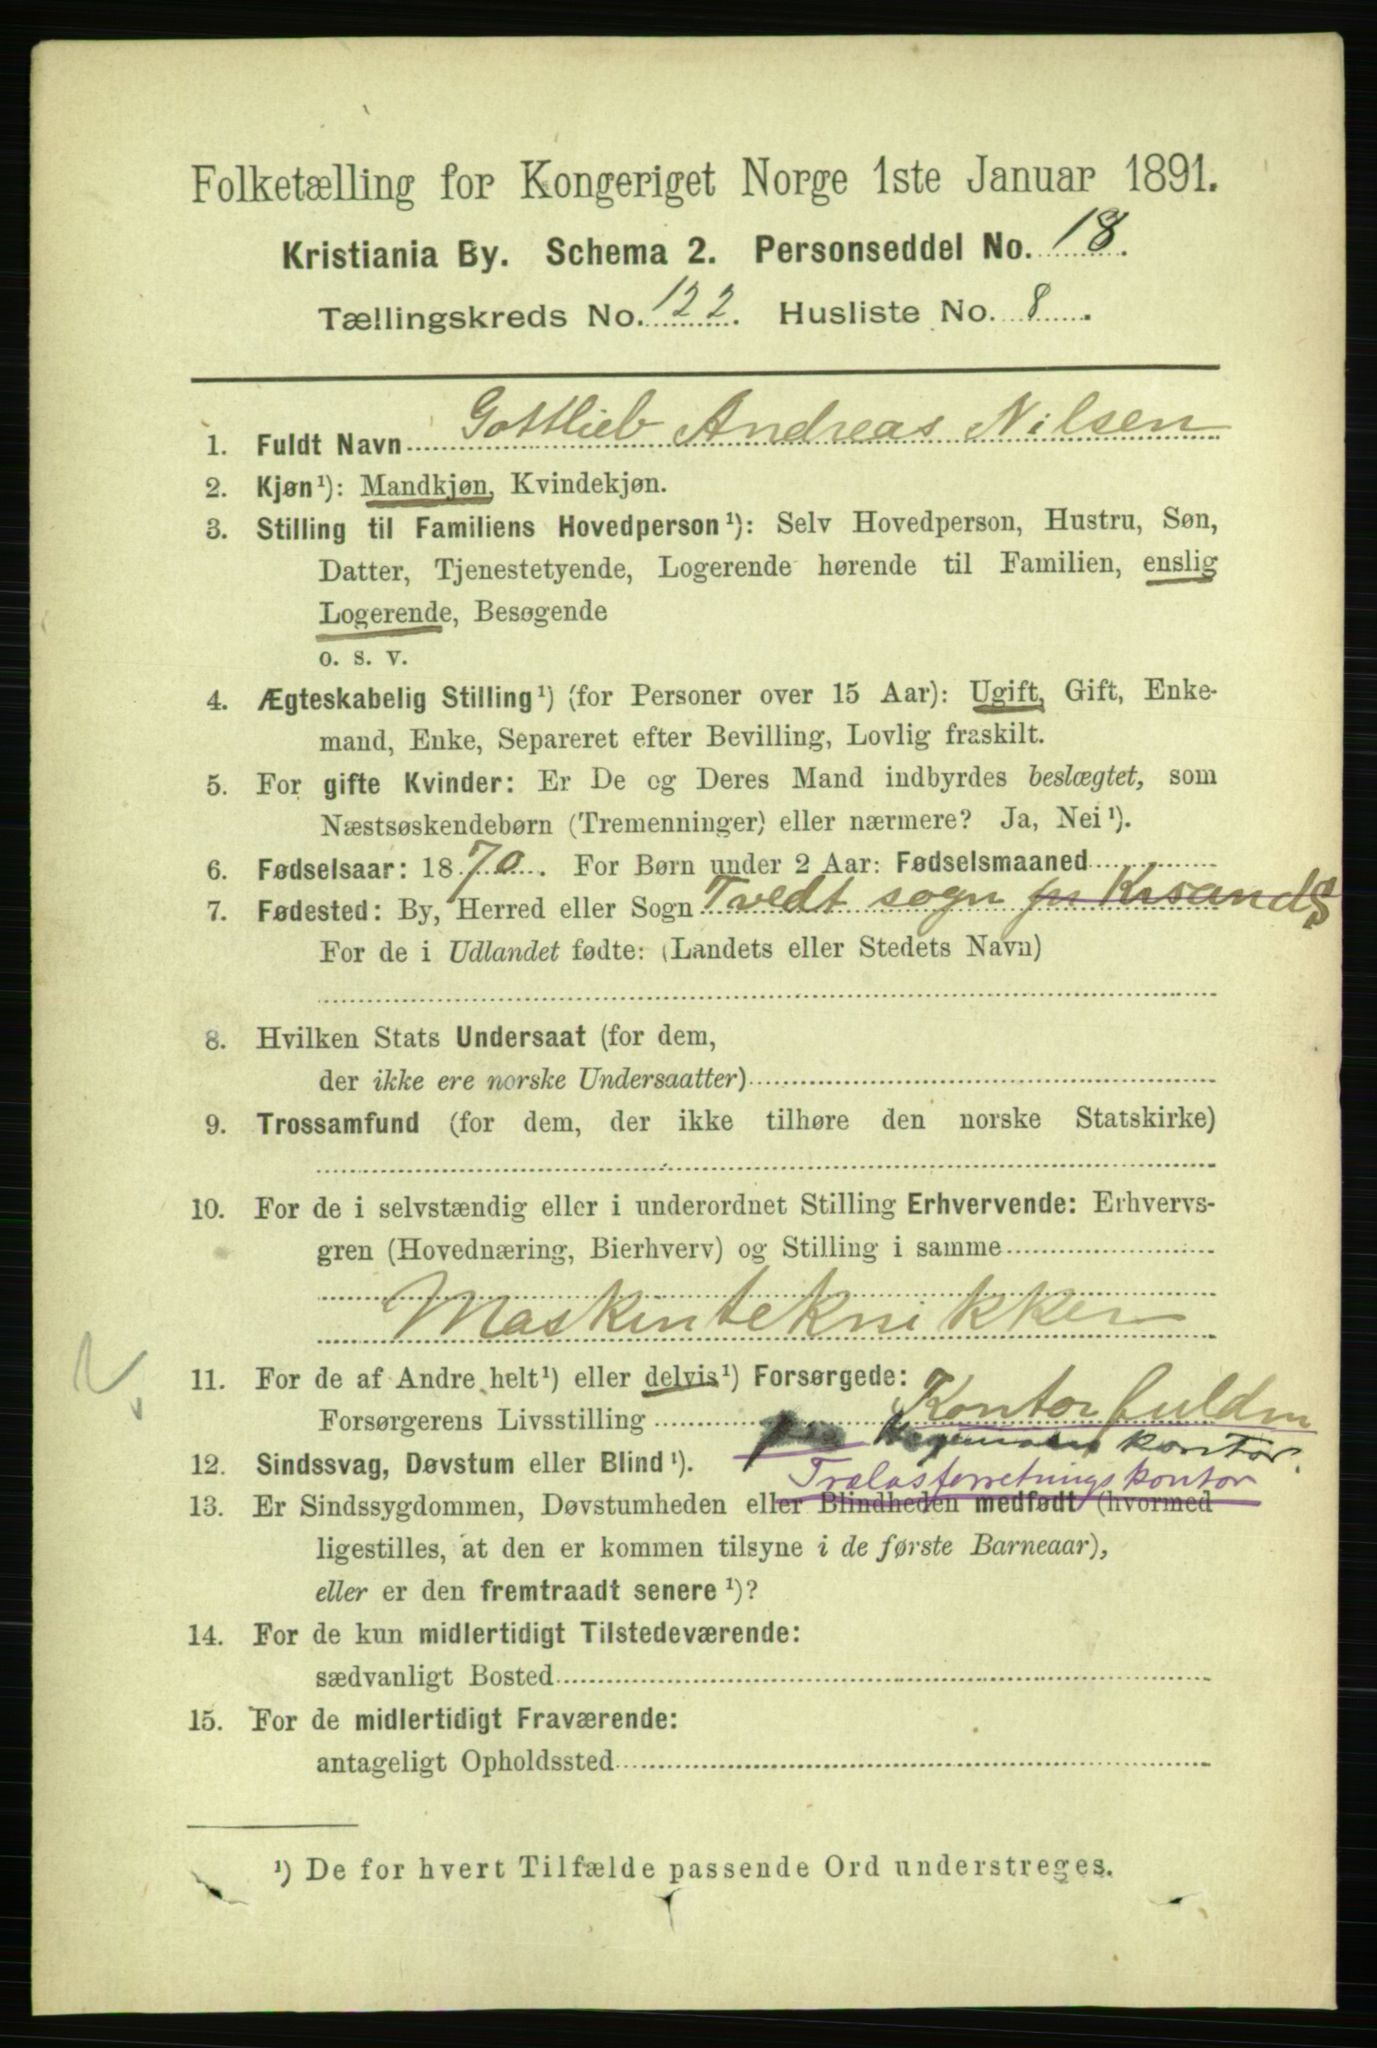 Folketælling for Kongeriget Norge 1ste Januar 1891.
Kristiania By. Schema 2. Personseddel No. 18.
Tællingskreds No. 122. Husliste No. 8.
1. Fuldt Navn Gottlieb Andreas Nilsen
2. Kjøn¹): Mandkjøn, Kvindekjøn.
3. Stilling til Familiens Hovedperson¹): Selv Hovedperson, Hustru, Søn,
Datter, Tjenestetyende, Logerende hørende til Familien, enslig
Logerende, Besøgende
o. s. v.
4. Ægteskabelig Stilling¹) (for Personer over 15 Aar): Ugift, Gift, Enke-
mand, Enke, Separeret efter Bevilling, Lovlig fraskilt.
5. For gifte Kvinder: Er De og Deres Mand indbyrdes beslægtet, som
Næstsøskendebørn (Tremenninger) eller nærmere? Ja, Nei¹).
6. Fødselsaar: 1870. For Børn under 2 Aar: Fødselsmaaned
7. Fødested: By, Herred eller Sogn Tvedt sogn pr Krsands
For de i Udlandet fødte: (Landets eller Stedets Navn)
8. Hvilken Stats Undersaat (for dem,
der ikke ere norske Undersaatter)
9. Trossamfund (for dem, der ikke tilhøre den norske Statskirke)
10. For de i selvstændig eller i underordnet Stilling Erhvervende: Erhvervs-
gren (Hovednæring, Bierhverv) og Stilling i samme
Maskinteknikker
11. For de af Andre helt¹) eller delvis¹) Forsørgede:
Forsørgerens Livsstilling Kontorfuldm
kontor.
12. Sindssvag, Døvstum eller Blind¹).
Trælastforretningskontor
13. Er Sindssygdommen, Døvstumheden eller Blindheden medfødt (hvormed
ligestilles, at den er kommen tilsyne i de første Barneaar),
eller er den fremtraadt senere¹)?
14. For de kun midlertidigt Tilstedeværende:
sædvanligt Bosted
15. For de midlertidigt Fraværende:
antageligt Opholdssted
¹) De for hvert Tilfælde passende Ord understreges.